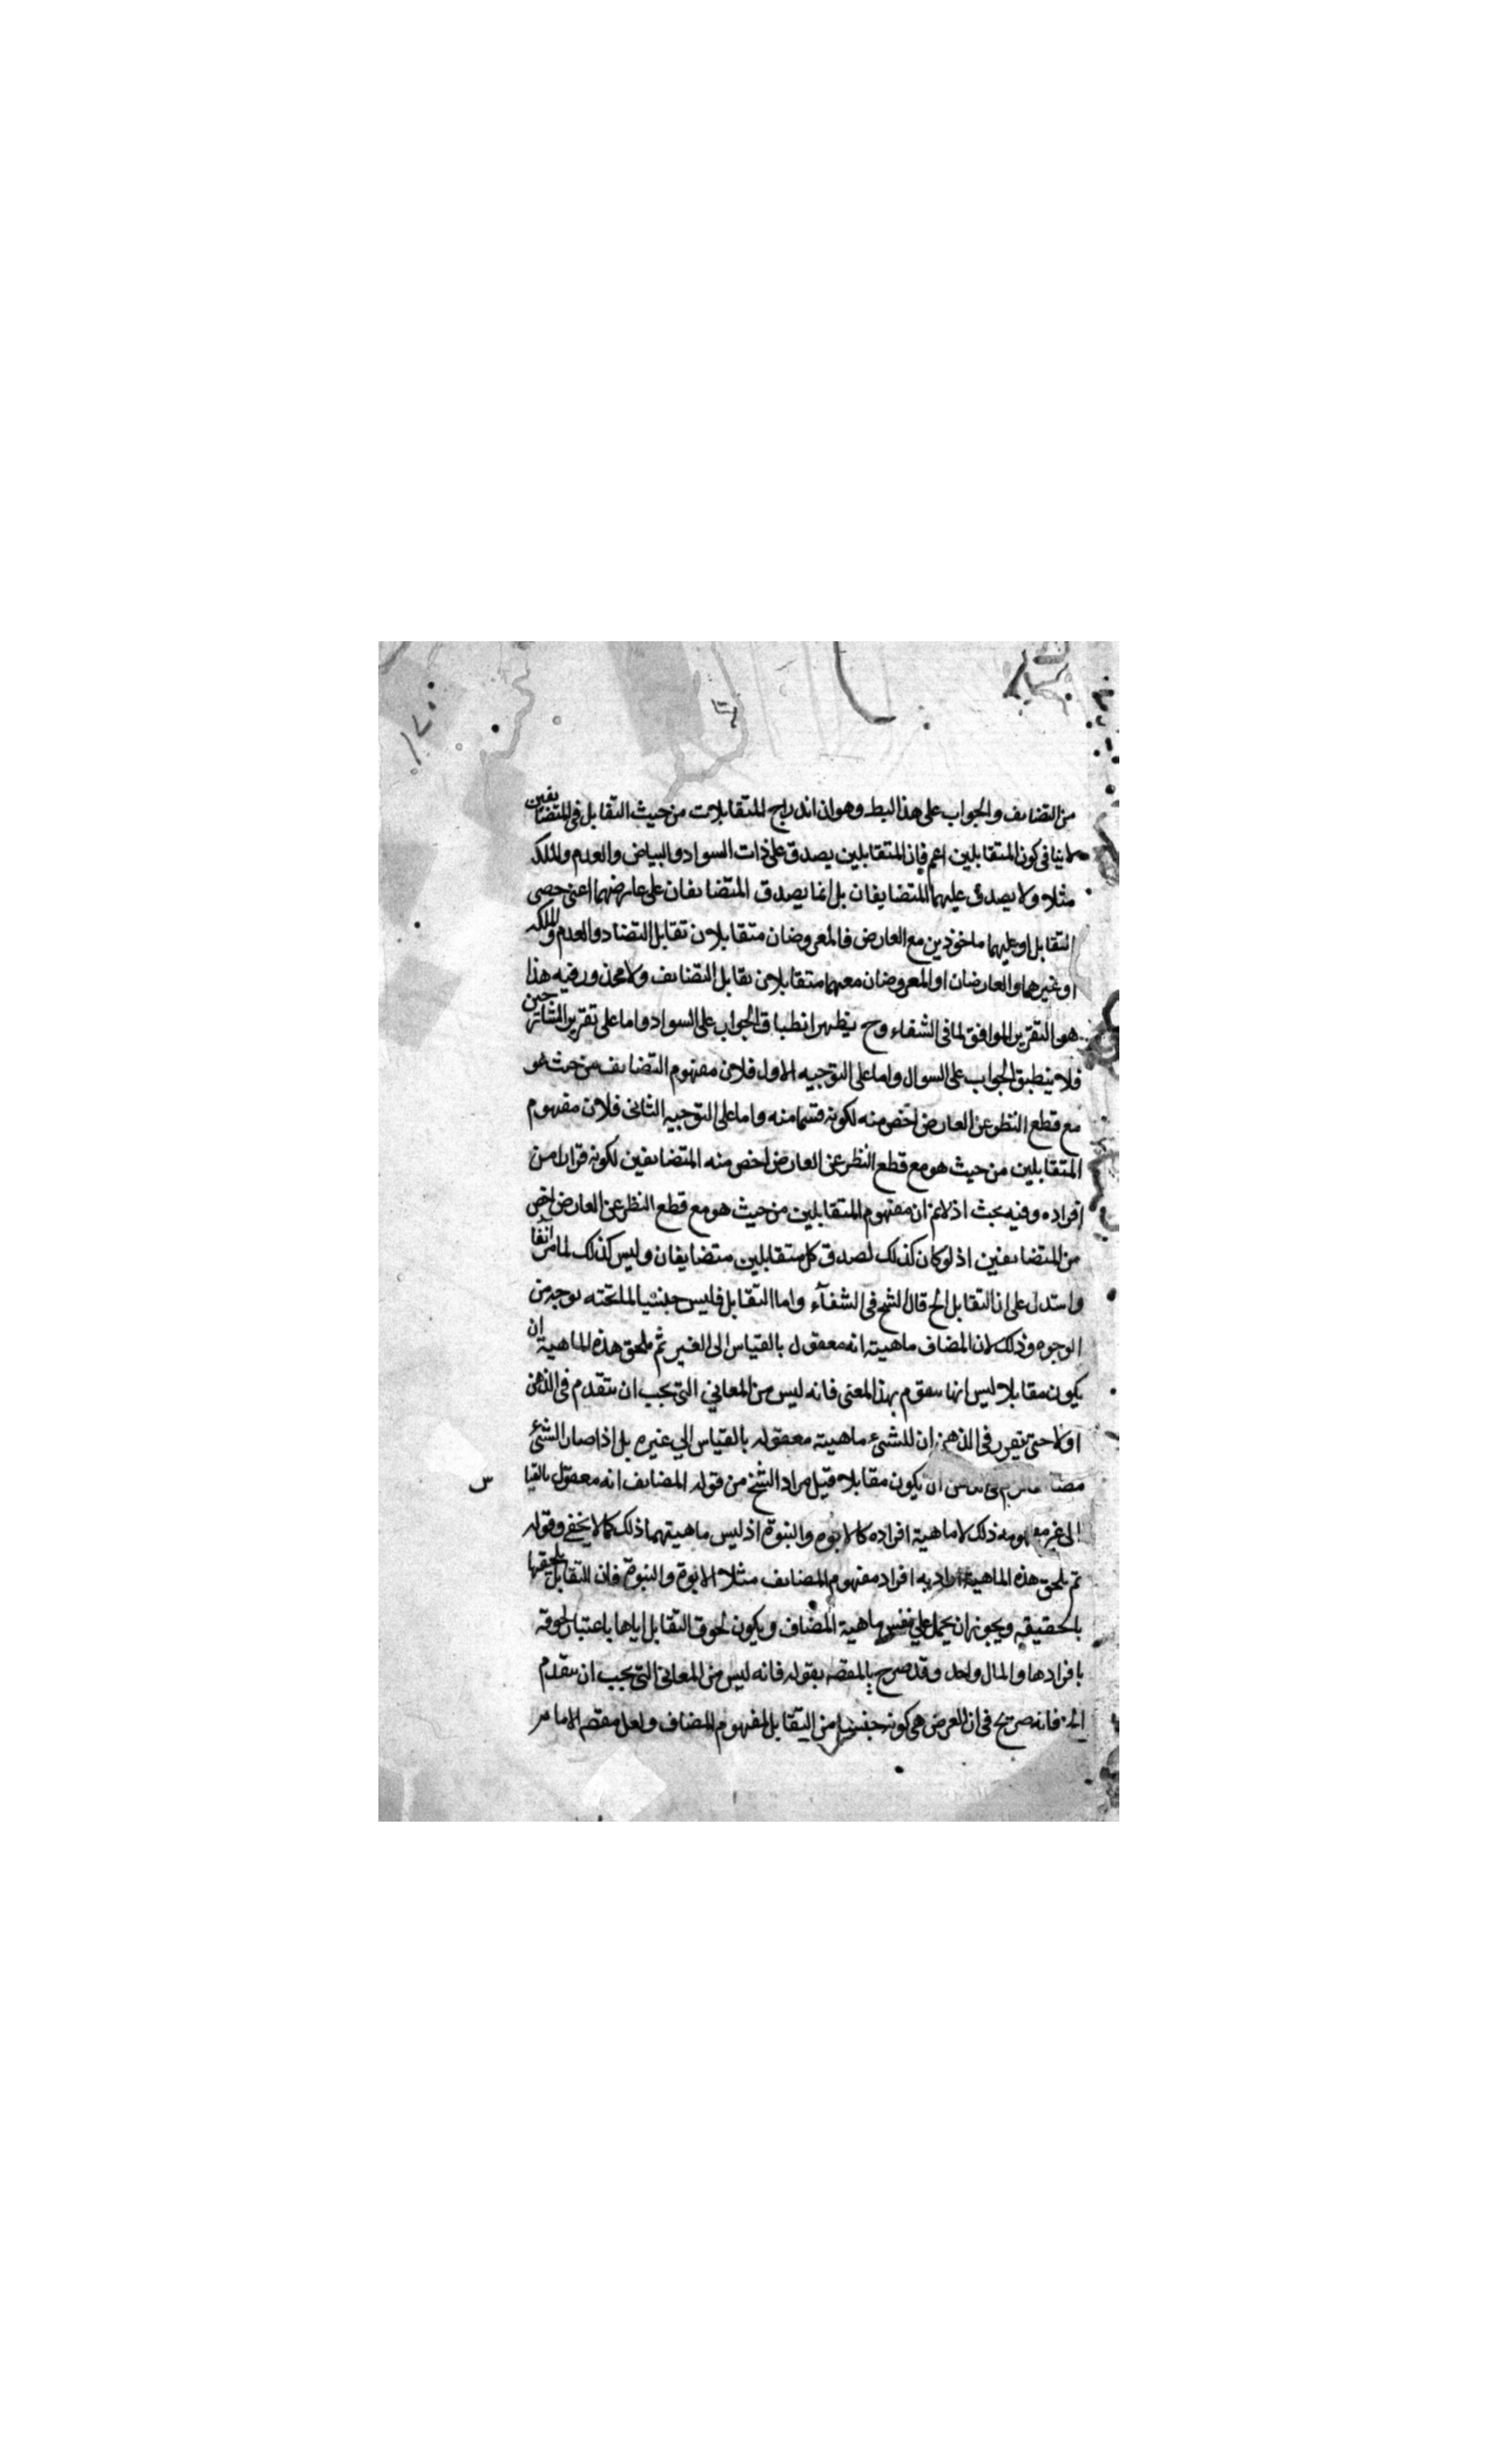 من التضايف والجواب على هذا البط وهو ان اندراج المتقابلات من حيث التقابل في المتضايفين
لا ينافي كون المتقابلين اعم فان المتقابلين يصدق على ذات السواد والبياض والعدم والملكه
مثلا ولا يصدق عليهما المتضايفان بل انما يصدق المتضايفان على عارضهما اعنى حصى
التقابل او عليهما ماخوذين مع العارض فالمعروضان متقابلان تقابل التضاد والعدم والملكه
او غيرهما والعارضان او المعروضان معهما متقابلان تقابل التضايف ولا محذور فيه هذا
هو التقرير الموافق لما في الشفاء وح يظهر انطباق الجواب على السواد واما على تقرير الشارحين
فلا ينطبق الجواب على السوال واما على التوجيه الاول فلان مفهوم التضايف من حيث هو
مع قطع النظر عن العارض اخص منه لكونه قسما منه واما على التوجيه الثانى فلان مفهوم
المتقابلين من حيث هو مع قطع النظر عن العارض اخص منه المتضايفين لكونه فردا من
افراده وفيه بحث اذ لانم ان مفهوم المتقابلين من حيث هو مع قطع النظر عن العارض اخص
من المتضايفين اذ لو كان كذلك لصدق كل متقابلين متضايفان وليس كذلك لما مر انفا
واستدل على ان التقابل الخ قال الشيخ في الشفآء واما التقابل فليس جنسيا لما تحته بوجه من
الوجوه وذلك لان المضاف ماهيته انه معقول بالقياس الى الغير ثم يلحق هذه الماهية ان
يكون مقابلا ليس انها تتقوم بهذا المعنى فانه ليس من المعاني التى يجب ان تتقدم في الذهن
اولا حتى يتقرر في الذهن ان للشئ ماهيته معقوله بالقياس الي غيره بل اذا صار الشئ
ان يكون مقابلا قيل مراد الشيخ من قوله المضايف انه معقول بالقياس
الى غير مفهومه ذلك لا ماهية افراده كالابوه والبنوة اذ ليس ماهيتهما ذلك كما لا يخفي وقوله
ثم يلحق هذه الماهية اراد به افراد مفهوم المضايف مثلا الابوة والبنوة فان التقابل يلحقها
بالحقيقه ويجوز ان يحمل علي نفس ماهية المضاف ويكون لحوق التقابل اياها باعتبار لحوقه
بافرادها والمال واحد وقد صرح بالمقصه بقوله فانه ليس من المعاني التى يجب ان يتقدم
الخ فانه صريح في ان الغرض هي كونه جنسيا من التقابل لمفهوم المضاف ولعل مقصه الامام